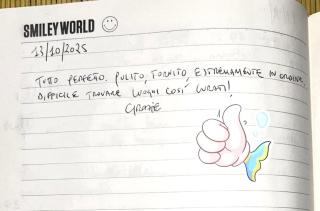 SMILEYWORLD
13/10/2025
TUTTO PERFETTO. PULITO, FORNITO, ESTREMAMENTE IN ORDINE.
DIFFICILE TROVARE LUOGHI COSÌ CURATI!
GRAZIE